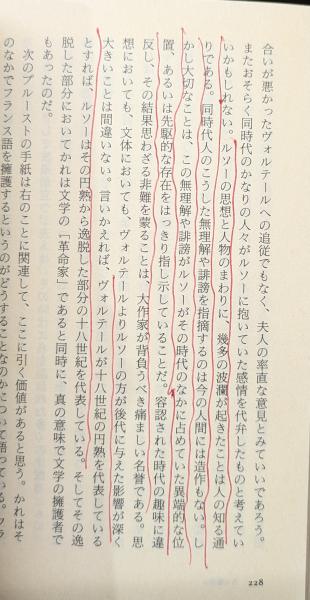 合いが悪かったヴォルテールへの追従でもなく、夫人の率直な意見とみていいであろう。
またおそらく同時代のかなりの人々がルソーに抱いていた感情を代弁したものと考えてい
いかもしれない。ルソーの思想と人物のまわりに、幾多の波瀾が起きたことは人の知る通
りである。同時代人のこうした無理解や誹謗を指摘するのは今の人間には造作もない。し
かし大切なことは、この無理解や誹謗がルソーがその時代のなかに占めていた異端的な位
置、あるいは先駆的な存在をはっきり指し示していることだ。容認された時代の趣味に違
反し、その結果思わざる非難を蒙ることは、大作家が背負うべき痛ましい名誉である。思
想においても、文体においても、ヴォルテールよりルソーの方が後代に与えた影響が深く
大きいことは間違いない。言いかえれば、ヴォルテールが十八世紀の円熟を代表している
とすれば、ルソーはその円熟から逸脱した部分の十八世紀を代表している。そしてその逸
脱した部分においてかれは文学の「革命家」であると同時に、真の意味で文学の擁護者で
もあったのだ。
次のプルーストの手紙は右のことに関連して、ここに引く価値があると思う。かれはそ
のなかでフランス語を擁護するというのがどうすることなのかについて語っている。フラ
228